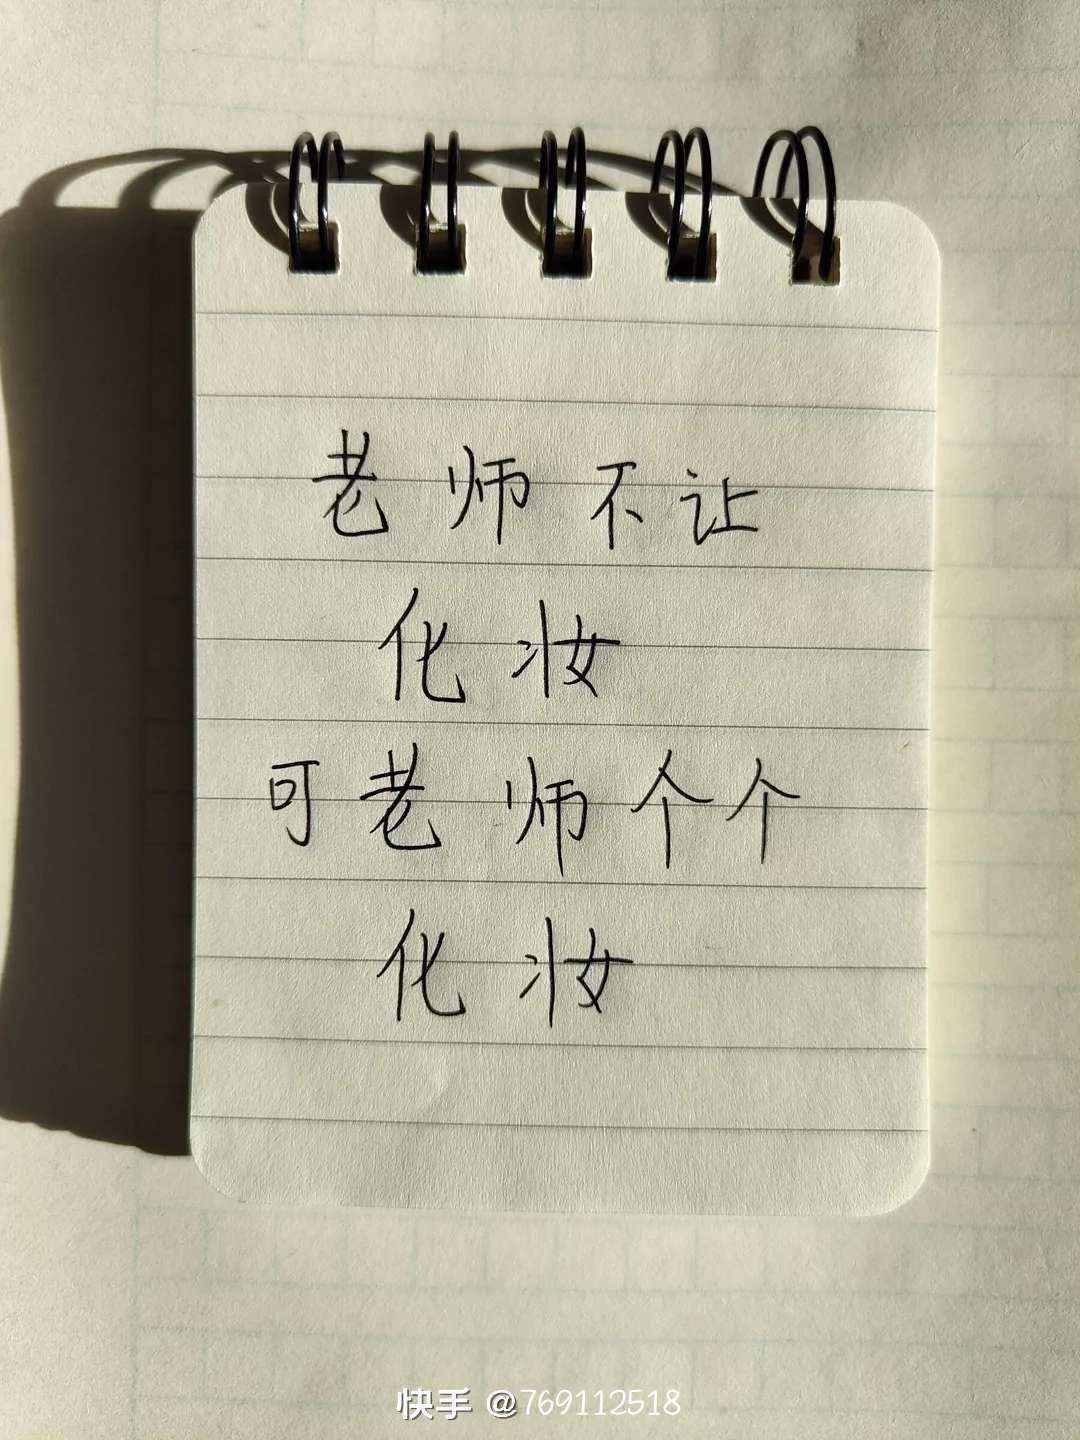 老师不让
化妆
可老师个个
化妆
快手 @769112518